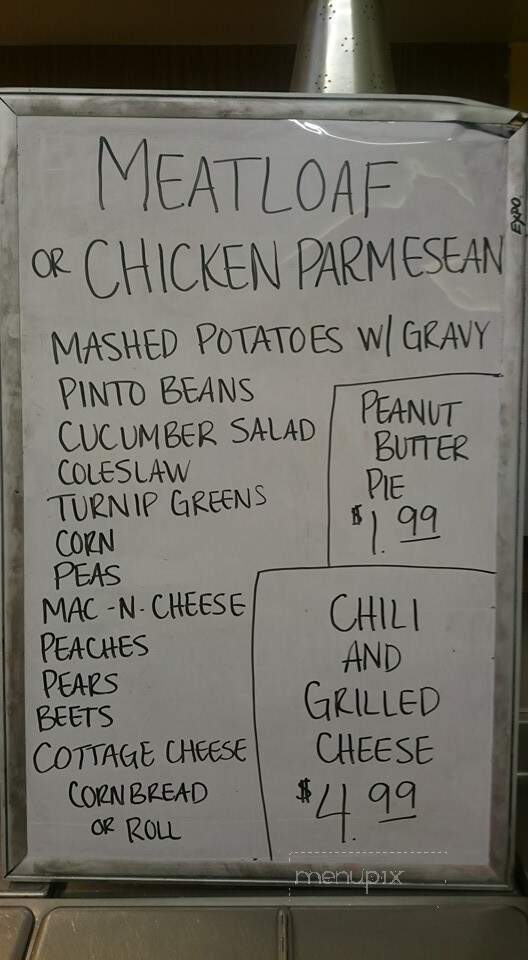 MEATLOAF
OR CHICKEN PARMESEAN
EXPO
MASHED POTATOES W/ GRAVY
PINTO BEANS
CUCUMBER SALAD
COLESLAW
TURNIP GREENS
CORN
PEAS
MAC-N-CHEESE
PEACHES
PEARS
BEETS
COTTAGE CHEESE
CORNBREAD
OR ROLL
PEANUT
BUTTER
PIE
$1.99
CHILI
AND
GRILLED
CHEESE
$4.99
menupix